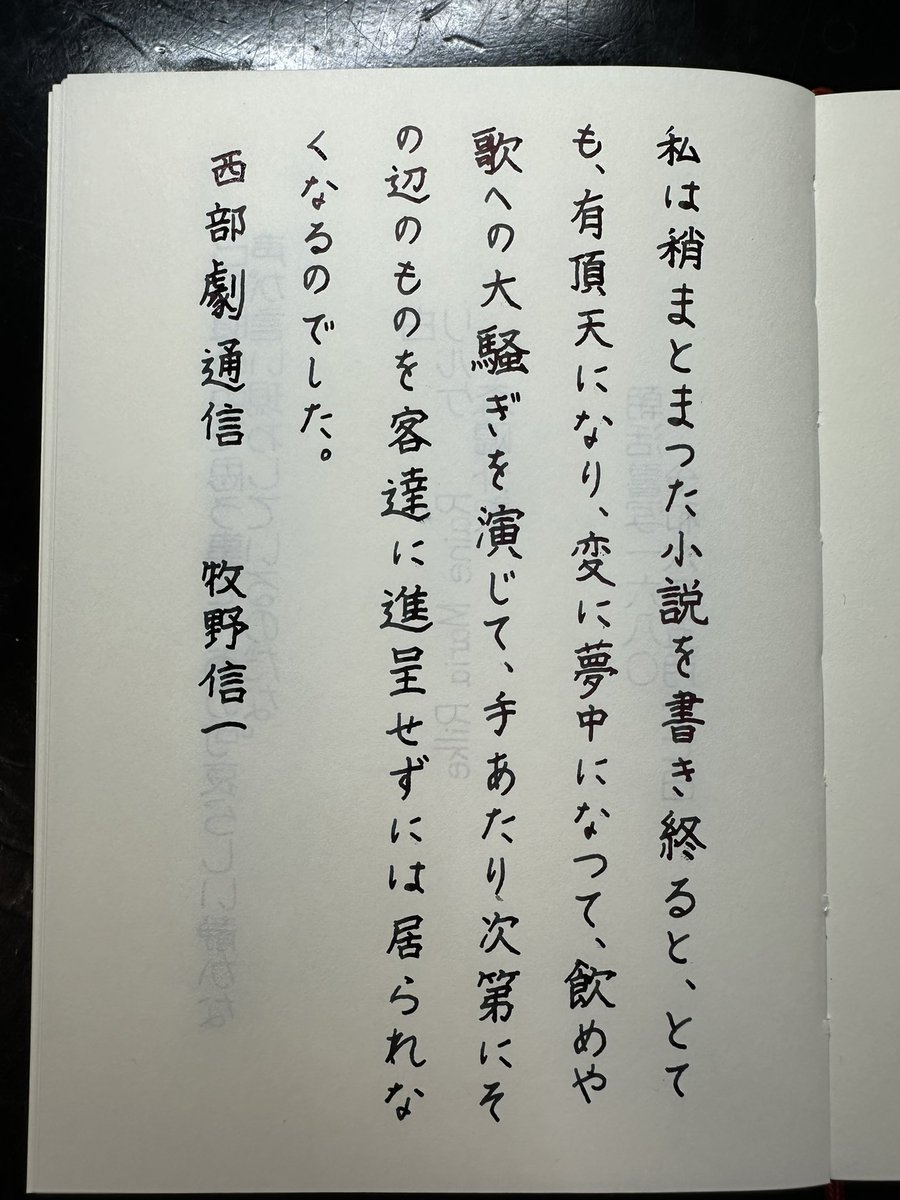 私は稍まとまつた小説を書き終ると、とて
も、有頂天になり、変に夢中になつて、飲めや
歌への大騒ぎを演じて、手あたり次第にそ
の辺のものを客達に進呈せずには居られな
くなるのでした。
西部劇通信　牧野信一